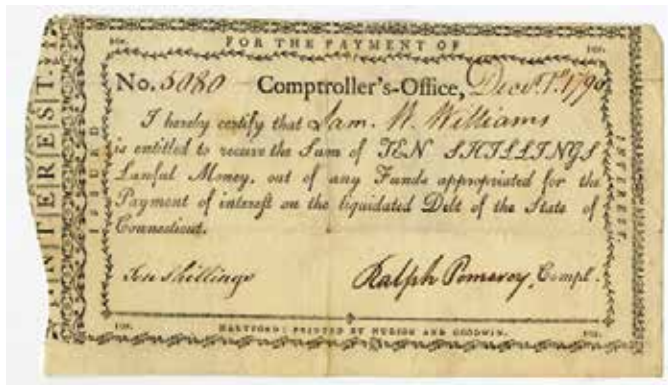 10s. FOR THE PAYMENT OF 10s.
No. 5080 Comptroller's-Office, Decr. 1st. 1790
I hereby certify that Sam. W. Williams
is entitled to receive the Sum of TEN SHILLINGS
Lawful Money, out of any Funds appropriated for the
Payment of interest on the liquidated Debt of the State of
Connecticut.
Ten Shillings Ralph Pomeroy, Compt.
10s. HARTFORD: PRINTED BY HUDSON AND GOODWIN. 10s.
INTEREST.
ISSUED
INTEREST.